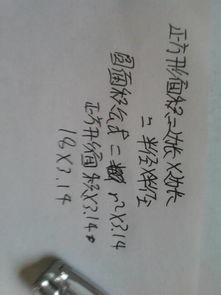 正方形面积=边长×边长
=半径×半径
圆面积公式=r²×3.14
正方形面积×3.14
18×3.14